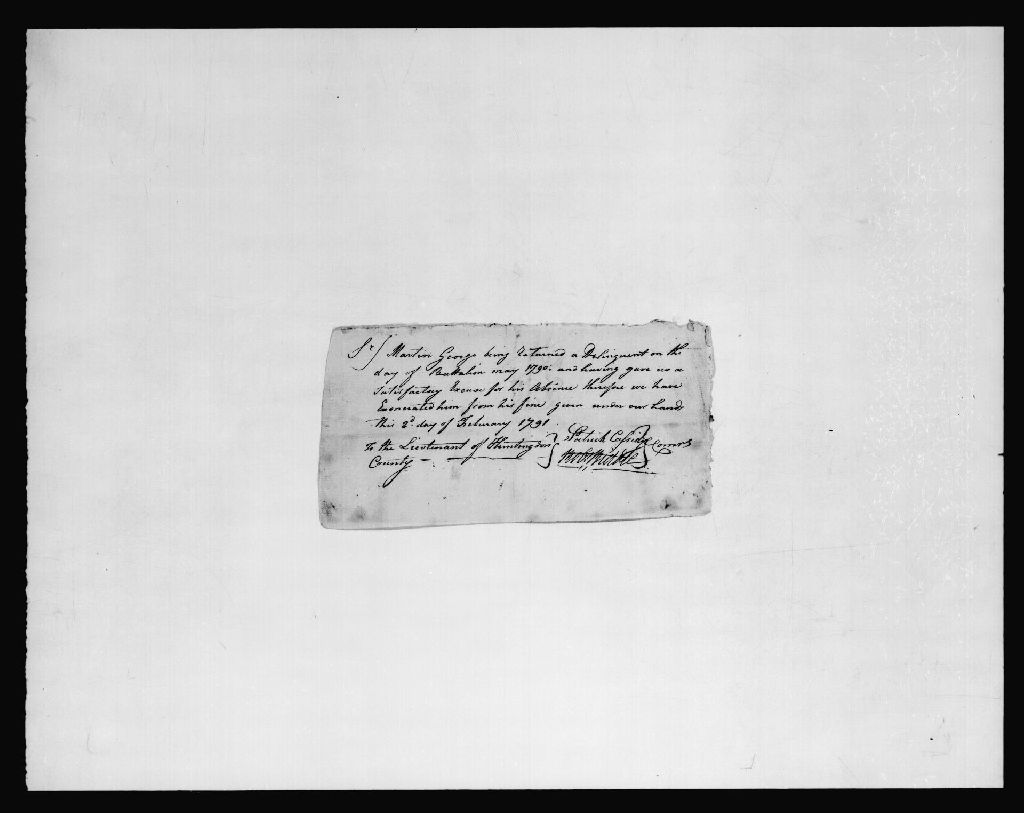 Sr/ Martin George being returned a Delinquent on the
day of Battalion may 1790. and having gave us a
Satisfactory Excuse for his Absence therefore we have
Exonerated him from his fine given under our hands
this 2d day of February 1791
To the Lieutenant of Huntingdon
County
Patrick Cassidy
Comrs